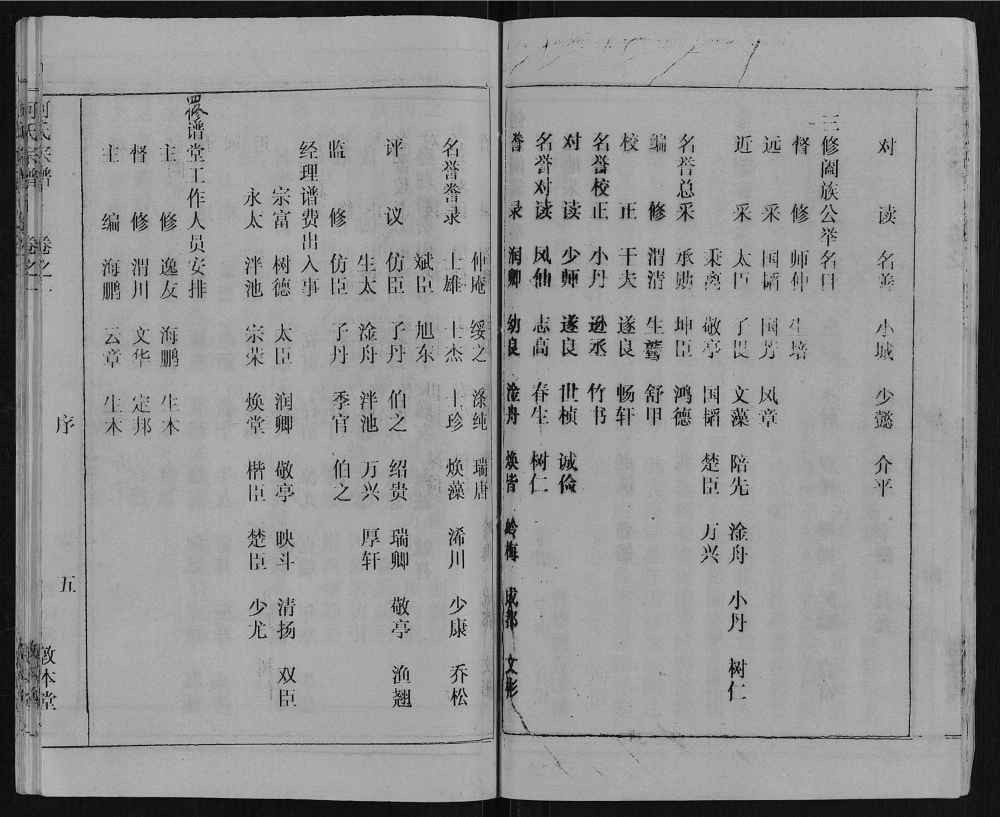 对读 名善 小城 少懿 介平
三修阖族公举名目
督修 师仲 生培
远采 国韬 国芳 凤章
近采 太臣 子畏 文藻 陪先 淦舟 小丹 树仁
乘离 敬亭 国韬 楚臣 万兴
名誉总采 承勋 坤臣 鸿德
编修 渭清 生鹜 舒甲
校正 干夫 遂良 畅轩
名誉校正 小丹 逊丞 竹书
对读 少师 遂良 世桢 诚俭
名誉对读 凤仙 志高 春生 树仁
誊录 润卿 幼良 淦舟 焕皆 岭梅 成郡 文彤
仲庵 绥之 涤纯 瑞唐
名誉誊录 士雄 士杰 士珍 焕藻 浠川 少康 乔松
斌臣 旭东
评议 仿臣 子丹 伯之 绍贵 瑞卿 敬亭 渔翘
生太 淦舟 泮池 万兴 厚轩
监修 仿臣 子丹 季官 伯之
经理谱费出入事
宗富 树德 太臣 润卿 敬亭 映斗 清扬 双臣
永太 泮池 宗荣 焕堂 楷臣 楚臣 少尤
四修谱堂工作人员安排
主修 逸友 海鹏 生本
督修 渭川 文华 定邦
主编 海鹏 云章 生本
序 五
何氏宗谱 卷之一 敦本堂